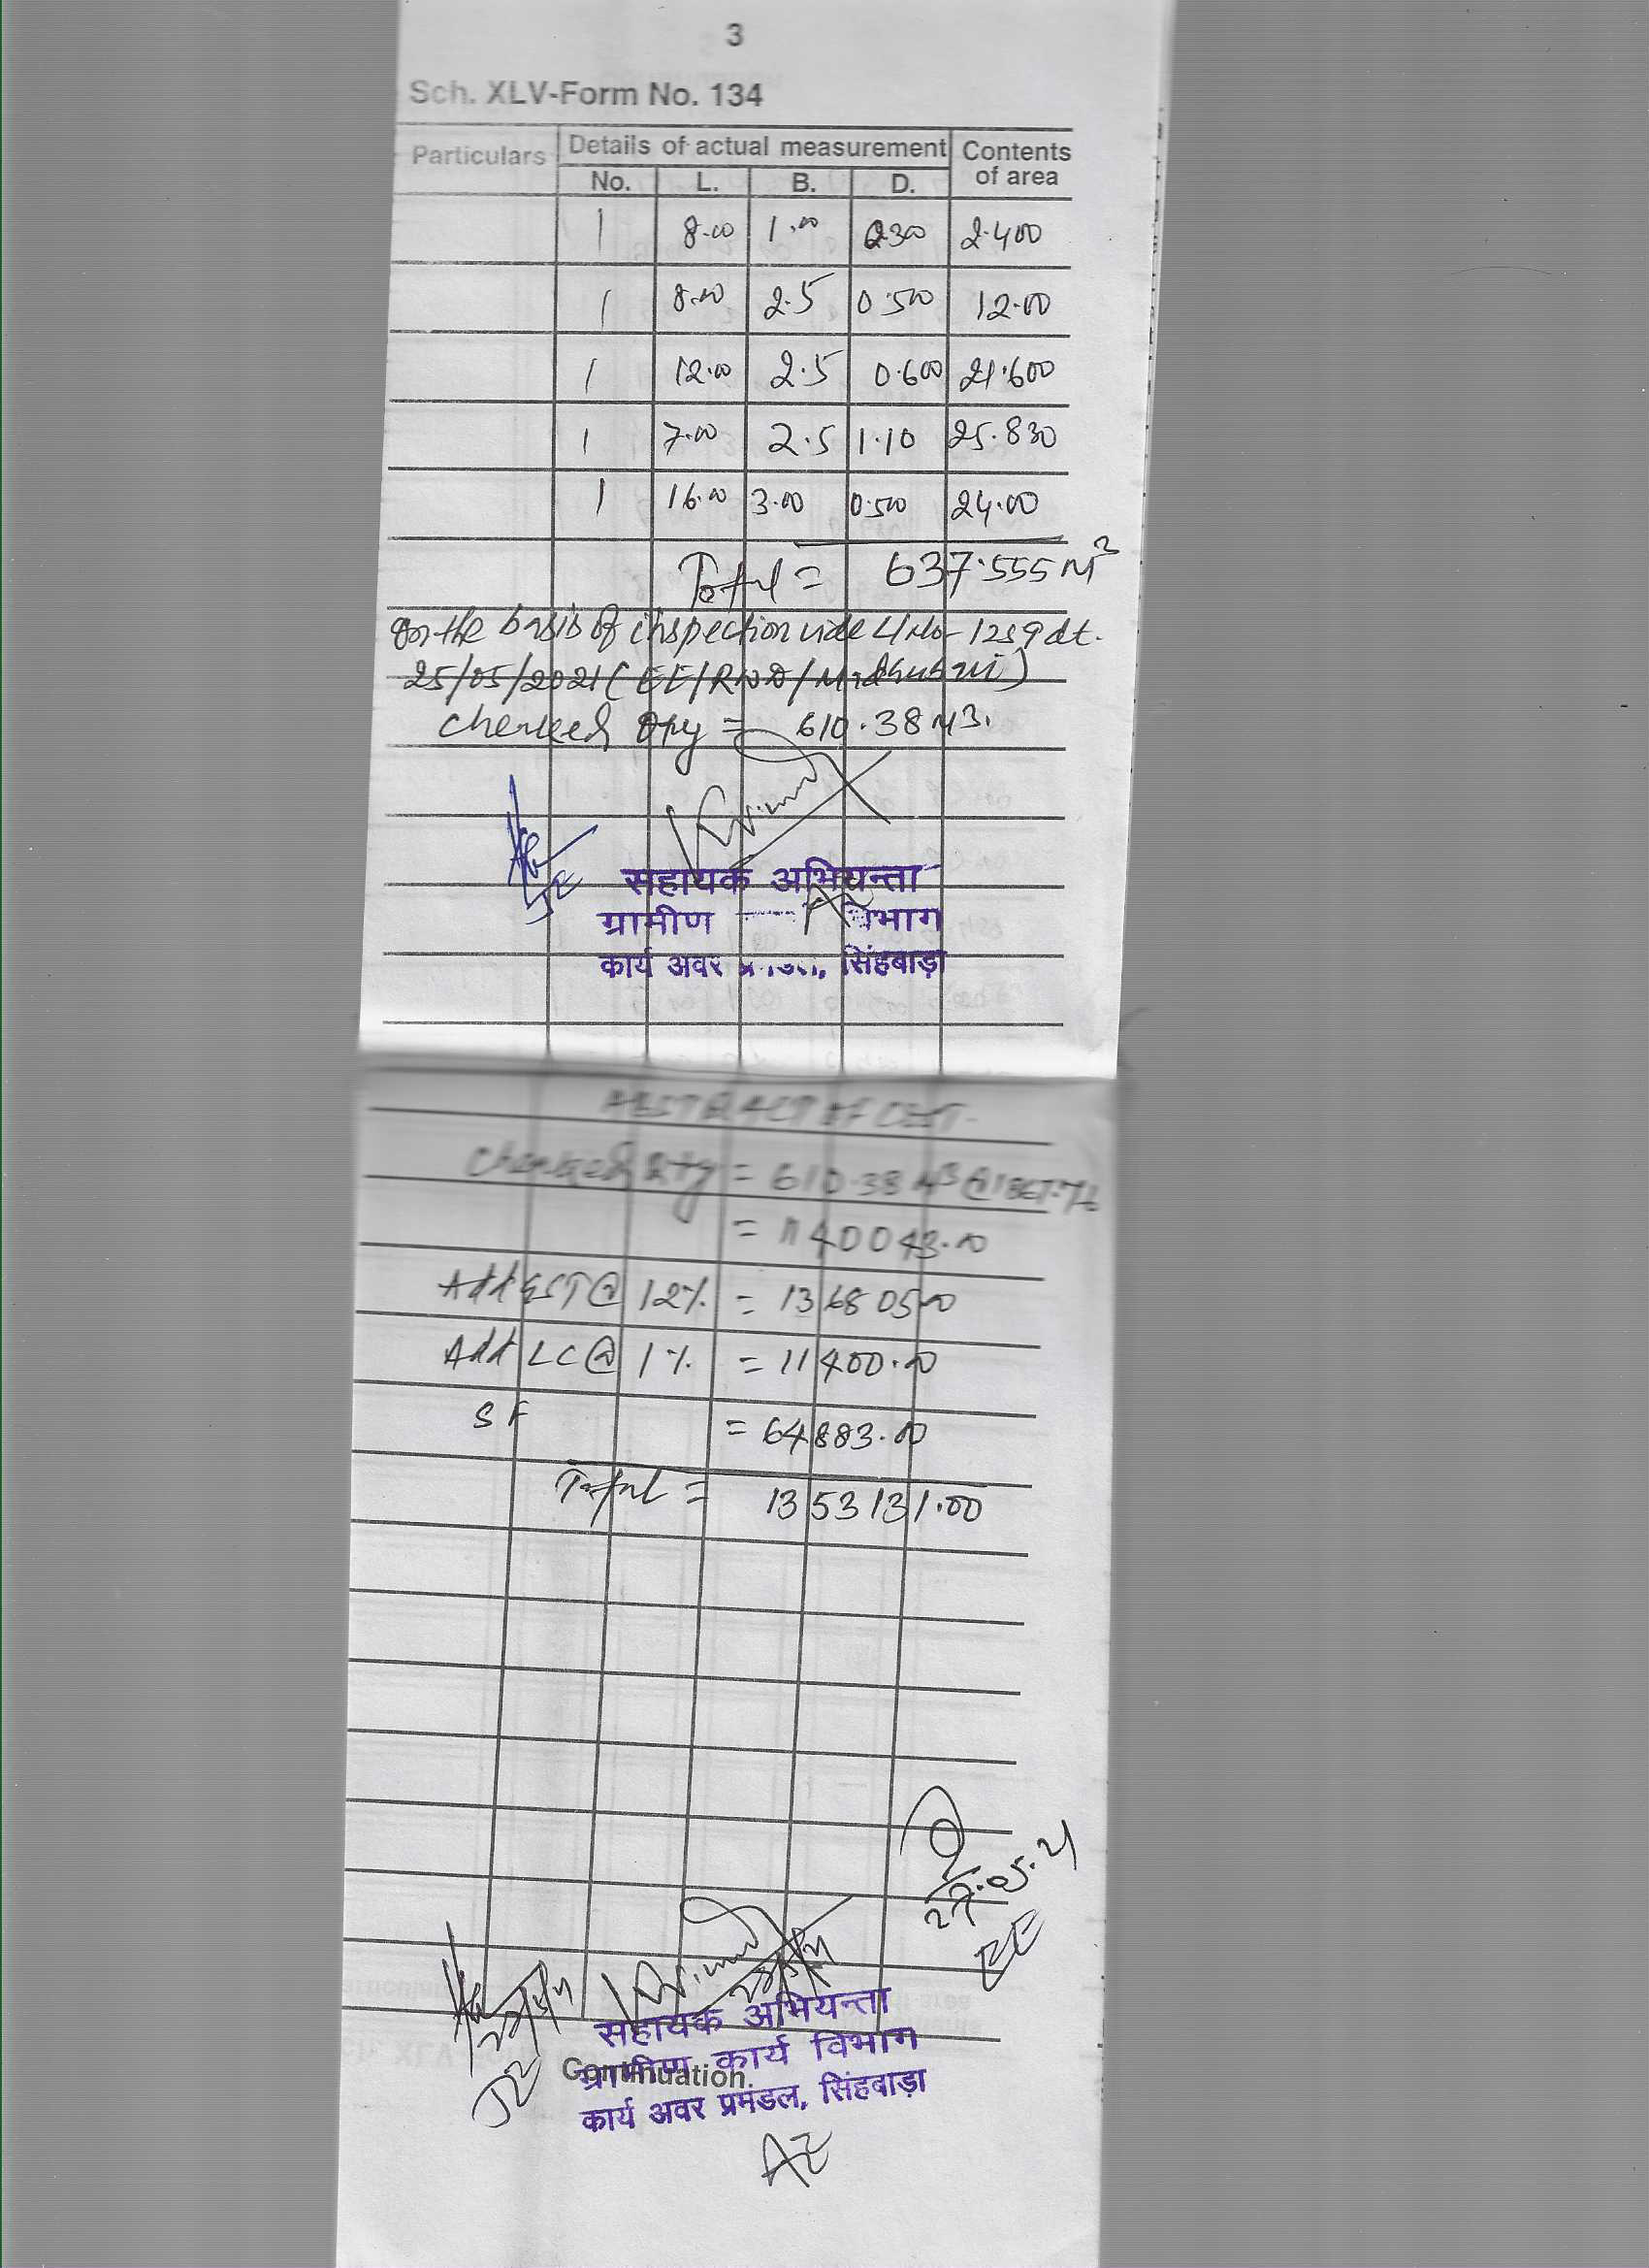 3
Sch. XLV-Form No. 134
Particulars Details of actual measurement Contents of area
No. L. B. D.
1 8.00 1.00 0.300 2.400
1 8.00 2.5 0.500 12.00
1 12.00 2.5 0.600 21.600
1 7.00 2.5 1.10 25.830
1 16.00 3.00 0.500 24.00
Total = 637.555 M3
on the basis of inspection vide L/No- 1259 dt.
25/05/2021 (EE/RWD/Madhubani)
Checked Qty = 610.38 M3.
JE
सहायक अभियन्ता
AE
ग्रामीण विभाग
कार्य अवर सिंहबाड़ा
ABSTRACT OF COST
Checked Qty = 610.38 M3 @ 1867.76
= 1140043.00
Add GST @ 12% = 136805.00
Add LC @ 1% = 11400.00
SF = 64883.00
Total = 1353131.00
27.05.21
EE
JE
सहायक अभियन्ता
ग्रामीण कार्य विभाग
Continuation.
कार्य अवर प्रमंडल, सिंहबाड़ा
AE